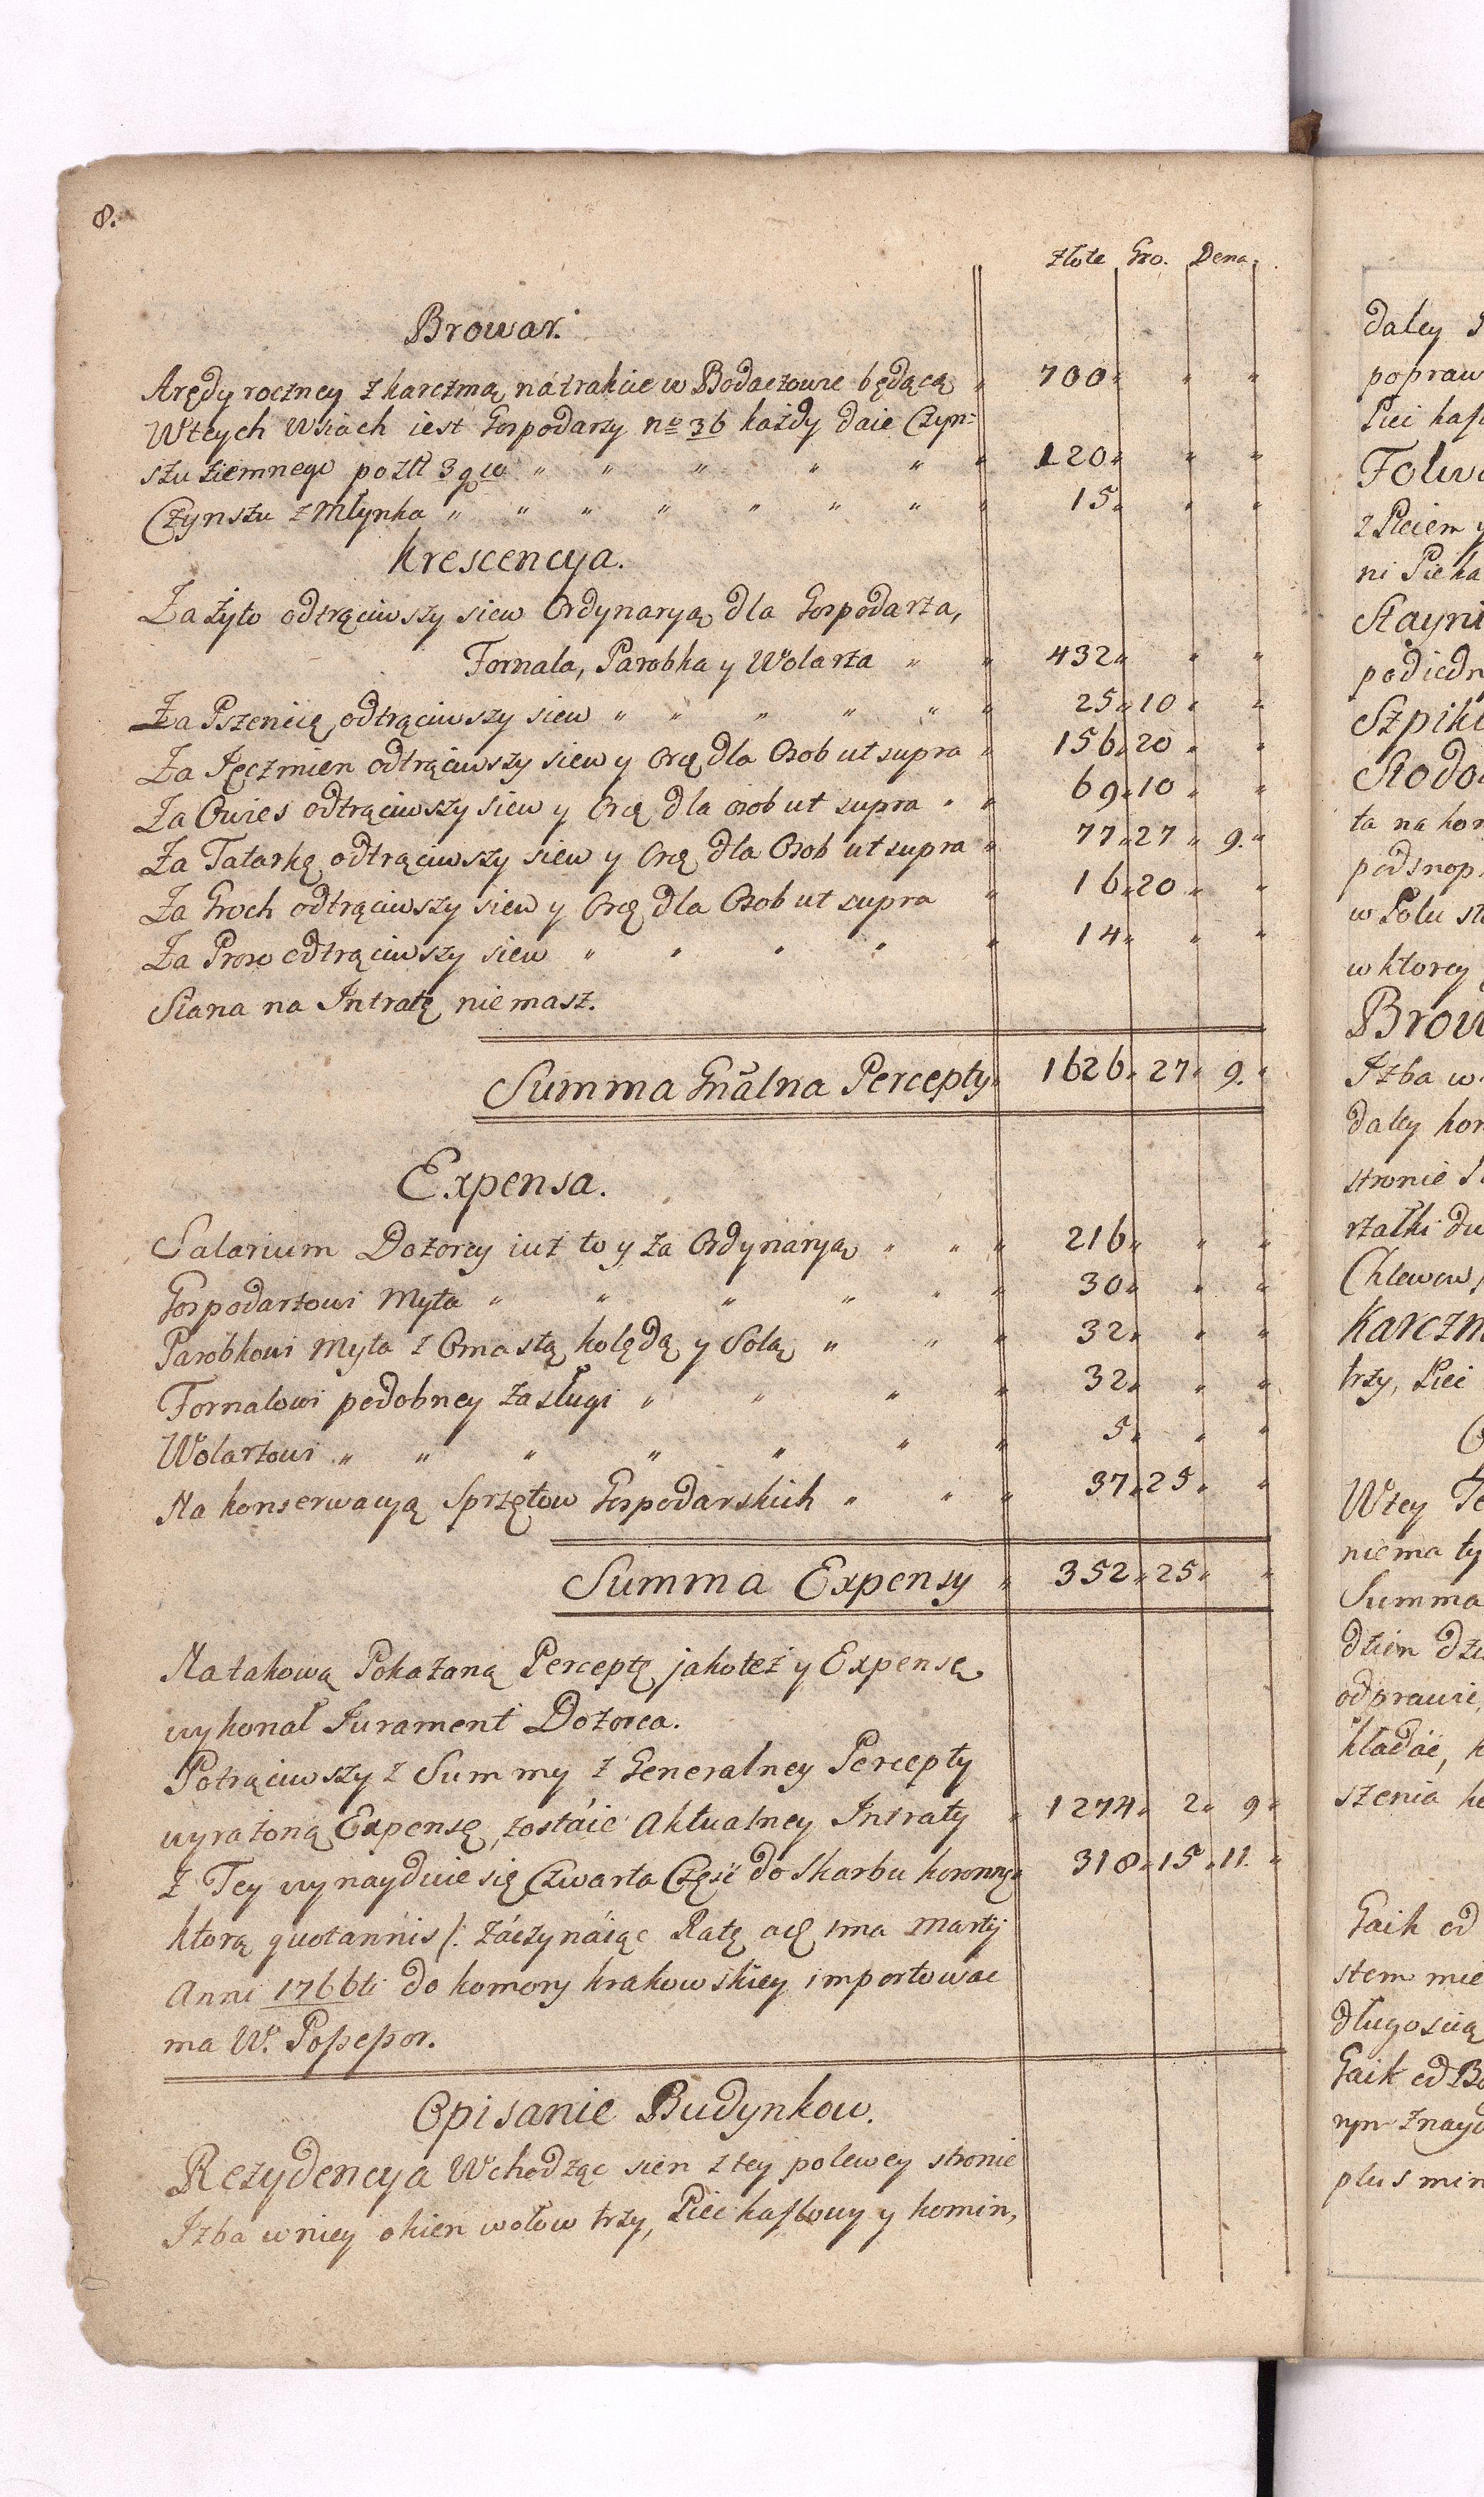 8.
Złote Gro. Dena.
Browar.
Arędy roczney z karczmą na trakcie w Bodaczowie będącą „ 700 „ „ „
W tych Wsiach iest Gospodarzy no 36 każdy daie Czyn=
szu ziemnego po ztt 3 „ „ „ „ „ „ 120 „ „ „
Czynszu z Młynka „ „ „ „ „ „ „ „ 15 „ „ „
Krescencya.
Za żyto odtrąciwszy siew Ordynaryą dla Gospodarza,
Fornala, Parobka y Wolarza „ „ 432 „ „ „
Za Pszenicę odtrąciwszy siew „ „ „ „ „ „ 25 „ 10 „ „
Za Jęczmien odtrąciwszy siew y Orę dla Osob ut supra „ 156 „ 20 „ „
Za Owies odtrąciwszy siew y Orę dla osob ut supra „ „ 69 „ 10 „ „
Za Tatarkę odtrąciwszy siew y Orę dla Osob ut supra „ 77 „ 27 „ 9. „
Za Groch odtrąciwszy siew y Orę dla Osob ut supra „ 16 „ 20 „ „
Za Proso odtrąciwszy siew „ „ „ „ „ 14 „ „ „
Siana na Intratę niemasz.
Summa Gnãlna Percepty „ 1626 „ 27 „ 9. „
Expensa.
Salarium Dozorcy iuż to y za Ordynaryą „ „ „ 216 „ „ „
Gospodarzowi Myta „ „ „ „ „ „ 30 „ „ „
Parobkowi Myta z Omastą kolędą y Solą „ „ „ 32 „ „ „
Fornalowi podobney zasługi „ „ „ „ 32 „ „ „
Wolarzowi „ „ „ „ „ „ „ 5 „ „ „
Na konserwacyą Sprzętow Gospodarskich „ „ „ 37 „ 25 „ „
Summa Expensy „ 352 „ 25 „ „
Na takową Pokazaną Perceptę jakoteż y Expensę
wykonał Jurament Dozorca.
Potrąciwszy z Summy z Generalney Percepty
wyrażoną Expensę zostáie Aktualney Intraty „ 1274 „ 2 „ 9 „
z Tey wynayduie się Czwarta Częsć do Skarbu koronng „ 318 „ 15 „ 11. „
ktorą quotannis /: záczynáiąc Ratę a 1ma Martij
Anni 1766ti do komory krakowskiey importowac
ma W. Possessor.
Opisanie Budynkow.
Rezydencya Wchodząc sien z tey po lewey stronie
Izba w niey okien wołow trzy, Piec kaflowy y komin,
daley
popraw
Piec kafl
Folwa
z Piciem y
ni Pieka
Stayni
podiedn
Szpikl
Stodo
ta na kon
pod snop
w Polu st
w ktorey
Brow
Izba w
daley kom
stronie
rzałki du
Chlewow
Karczm
trzy, Piec
W tey
niema ty
Summa
odprawie,
kładać, k
szenia
Gaik od
stem mie
długoscią
Gaik od Bo
rym znayd
plus min